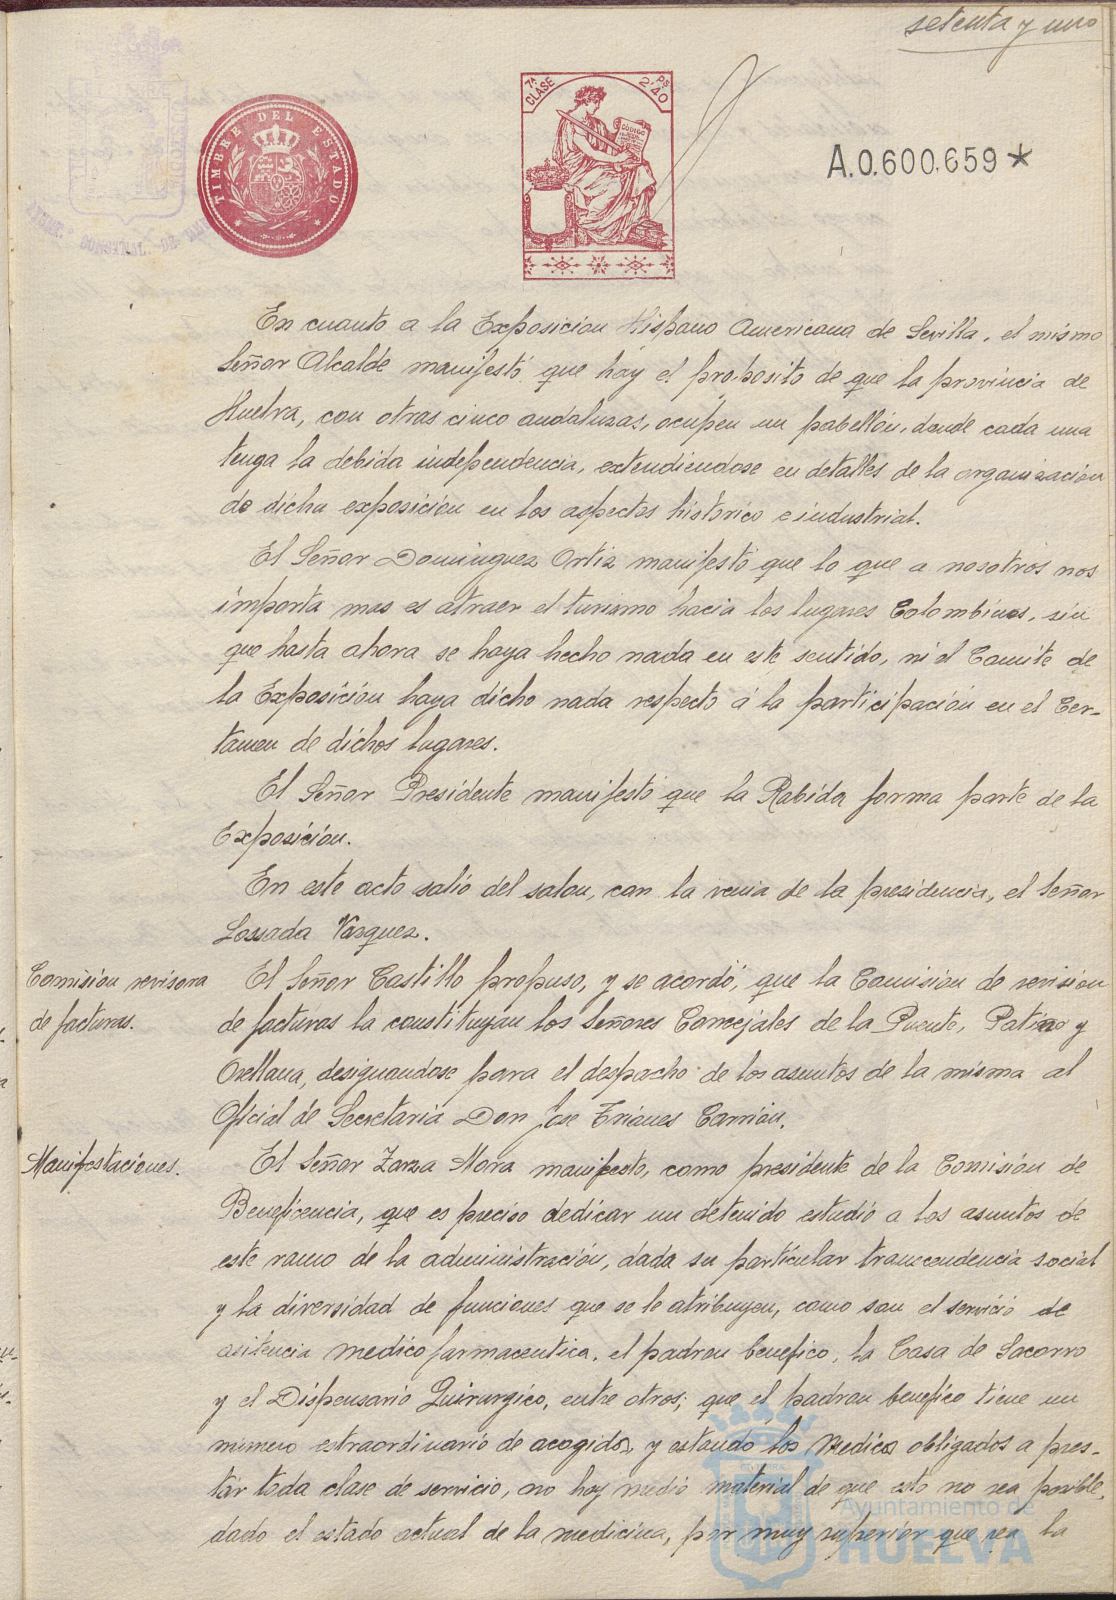 setenta y uno
TIMBRE DEL ESTADO
7ª CLASE
PS 2'40
CÓDIGO
A.0.600.659*
En cuanto a la Exposicion Hispano Americana de Sevilla, el mismo
Señor Alcalde manifestó que hay el proposito de que la provincia de
Huelva, con otras cinco andaluzas, ocupen un pabellón, donde cada una
tenga la debida independencia, extendiendose en detalles de la organización
de dicha exposición en los aspectos histórico e industrial.
El Señor Dominguez Ortiz manifestó que lo que a nosotros nos
importa mas es atraer el turismo hacia los lugares Colombinos, sin
que hasta ahora se haya hecho nada en este sentido, ni el Comite de
la Exposición haya dicho nada respecto á la participación en el Cer-
tamen de dichos lugares.
El Señor Presidente manifestó que la Rabida forma parte de la
Exposición.
En este acto salió del salon, con la venia de la presidencia, el Señor
Lossada Vazquez.
Comisión revisora
de facturas.
El Señor Castillo propuso, y se acordó, que la Comisión de revisión
de facturas la constituyan los Señores Concejales de la Puente, Patiño y
Orellana, designandose para el despacho de los asuntos de la misma al
Oficial de Secretaria Don Jose Trianes Carrión.
Manifestaciones.
El Señor Zarza Mora manifesto, como presidente de la Comisión de
Beneficencia, que es preciso dedicar un detenido estudio a los asuntos de
este ramo de la administración, dada su particular transcendencia social
y la diversidad de funciones que se le atribuyen, como son el servicio de
asitencia medico farmaceutica, el padron benefico, la Casa de Socorro
y el Dispensario Quirurgico, entre otros; que el padron benefico tiene un
numero estraordinario de acogidos, y estando los Medicos obligados a pres-
tar toda clase de servicio, no hay medio material de que esto no sea posible,
dado el estado actual de la medicina, por muy superior que sea la
Ayuntamiento de
HUELVA